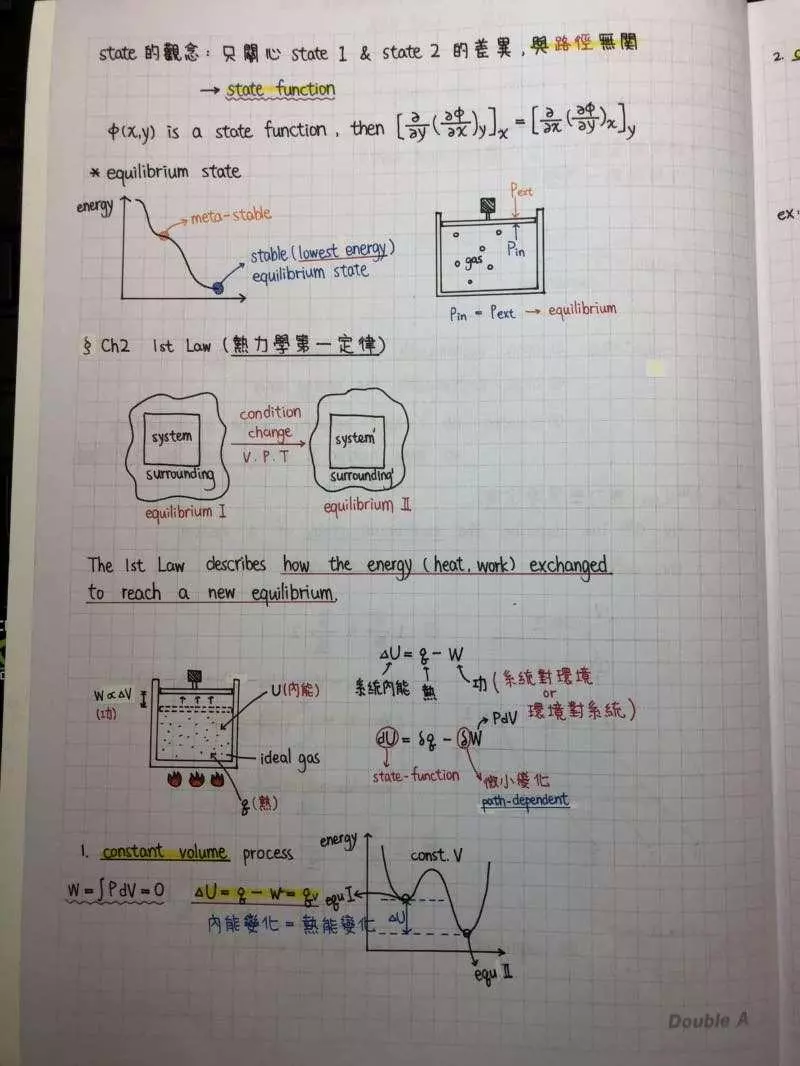 state 的觀念：只關心 state 1 & state 2 的差異，與路徑無関
→ state function
φ(x,y) is a state function, then [∂/∂y(∂φ/∂x)y]x = [∂/∂x(∂φ/∂y)x]y
* equilibrium state
energy
meta-stable
stable (lowest energy)
equilibrium state
Pext
Pin
gas
Pin = Pext → equilibrium
§ Ch2 1st Law (熱力學第一定律)
system
surrounding
equilibrium I
condition
change
V. P. T
system'
surrounding'
equilibrium II
The 1st Law describes how the energy (heat, work) exchanged
to reach a new equilibrium.
W∝ΔV
(功)
U(內能)
ideal gas
q(熱)
ΔU = q - W
系統內能 熱 功(系統對環境
or
環境對系統)
PdV
dU = δq - δW
state-function
微小變化
path-dependent
1. constant volume process
W = ∫PdV = 0 ΔU = q - W = qv
內能變化 = 熱能變化
energy
const. V
equ I
ΔU
equ II
2.
ex:
Double A